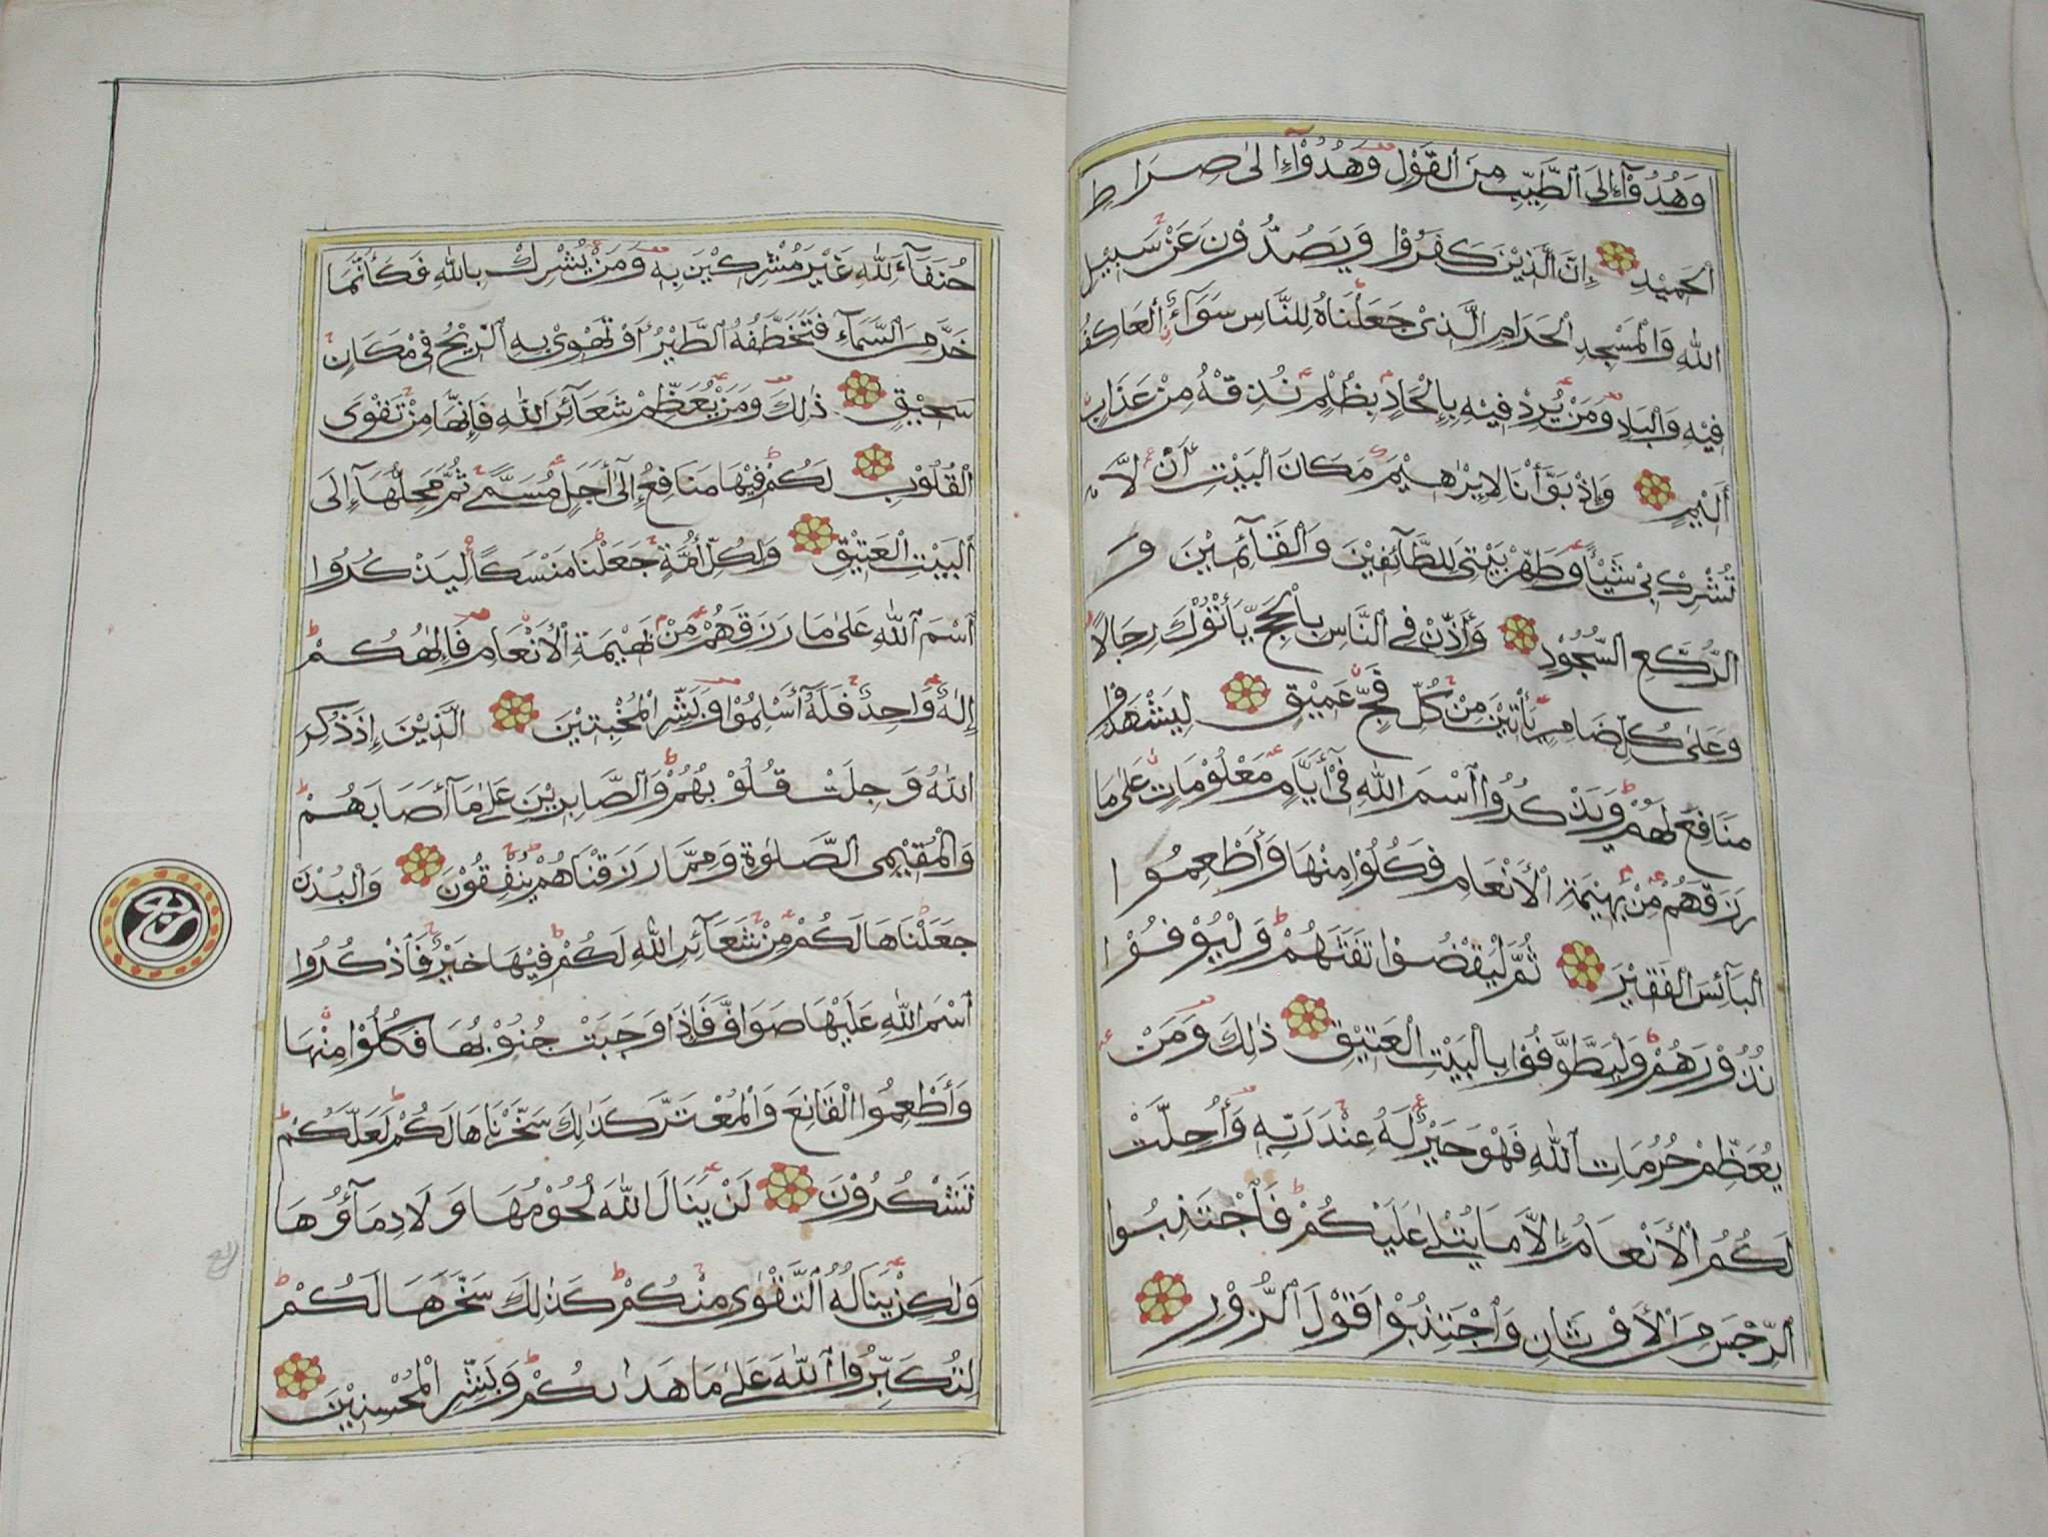 وَهُدُوٓا۟ إِلَى ٱلطَّيِّبِ مِنَ ٱلْقَوْلِ وَهُدُوٓا۟ إِلىٰ صِرَاطِ
ٱلْحَمِيْدِ إِنَّ ٱلَّذِيْنَ كَفَرُوْا وَيَصُدُّوْنَ عَنْ سَبِيْلِ
اللّٰهِ وَالْمَسْجِدِ الْحَرَامِ الَّذِىْ جَعَلْنَاهُ لِلنَّاسِ سَوَآءً ٱلْعَاكِفُ
فِيْهِ وَالْبَادِ وَمَنْ يُرِدْ فِيْهِ بِإِلْحَادٍ بِظُلْمٍ نُذِقْهُ مِنْ عَذَابٍ
أَلِيْمٍ وَإِذْ بَوَّأْنَا لِإِبْرٰهِيْمَ مَكَانَ ٱلْبَيْتِ أَنْ لَّا
تُشْرِكْ بِىْ شَيْـًٔا وَطَهِّرْ بَيْتِىَ لِلطَّآئِفِيْنَ وَٱلْقَآئِمِيْنَ وَ
الرُّكَّعِ السُّجُوْدِ وَأَذِّنْ فِى النَّاسِ بِٱلْحَجِّ يَأْتُوْكَ رِجَالًا
وَعَلىٰ كُلِّ ضَامِرٍ يَأْتِيْنَ مِنْ كُلِّ فَجٍّ عَمِيْقٍ لِيَشْهَدُوْا
مَنَافِعَ لَهُمْ وَيَذْكُرُوا ٱسْمَ اللّٰهِ فِىْ أَيَّامٍ مَعْلُوْمَاتٍ عَلىٰ مَا
رَزَقَهُمْ مِنْ بَهِيْمَةِ الْأَنْعَامِ فَكُلُوْا مِنْهَا وَأَطْعِمُوا
ٱلْبَآئِسَ ٱلْفَقِيْرَ ثُمَّ لْيَقْضُوْا تَفَثَهُمْ وَلْيُوْفُوْا
نُذُوْرَهُمْ وَلْيَطَّوَّفُوْا بِٱلْبَيْتِ الْعَتِيْقِ ذٰلِكَ وَمَنْ
يُعَظِّمْ حُرُمَاتِ ٱللّٰهِ فَهْوَ خَيْرٌ لَهُ عِنْدَ رَبِّهِ وَأُحِلَّتْ
لَكُمُ الْأَنْعَامُ إِلَّا مَا يُتْلىٰ عَلَيْكُمْ فَٱجْتَنِبُوا
ٱلرِّجْسَ مِنَ الْأَوْثَانِ وَٱجْتَنِبُوْا قَوْلَ ٱلزُّوْرِ
حُنَفَآءَ لِلّٰهِ غَيْرَ مُشْرِكِيْنَ بِهِ وَمَنْ يُشْرِكْ بِاللّٰهِ فَكَأَنَّمَا
خَرَّ مِنَ السَّمَآءِ فَتَخَطَّفُهُ الطَّيْرُ أَوْ تَهْوِىْ بِهِ ٱلرِّيْحُ فِىْ مَكَانٍ
سَحِيْقٍ ذٰلِكَ وَمَنْ يُعَظِّمْ شَعَآئِرَ اللّٰهِ فَإِنَّهَا مِنْ تَقْوَى
الْقُلُوْبِ لَكُمْ فِيْهَا مَنَافِعُ إِلىٰٓ أَجَلٍ مُسَمًّى ثُمَّ مَحِلُّهَآ إِلَى
ٱلْبَيْتِ الْعَتِيْقِ وَلِكُلِّ أُمَّةٍ جَعَلْنَا مَنْسَكًا لِيَذْكُرُوا
ٱسْمَ ٱللّٰهِ عَلىٰ مَا رَزَقَهُمْ مِنْ بَهِيْمَةِ الْأَنْعَامِ فَإِلٰهُكُمْ
إِلٰهٌ وَاحِدٌ فَلَهُ أَسْلِمُوْا وَبَشِّرِ الْمُخْبِتِيْنَ الَّذِيْنَ إِذَا ذُكِرَ
اللّٰهُ وَجِلَتْ قُلُوْبُهُمْ وَٱلصَّابِرِيْنَ عَلىٰ مَآ أَصَابَهُمْ
وَالْمُقِيْمِى الصَّلٰوةِ وَمِمَّا رَزَقْنَاهُمْ يُنْفِقُوْنَ وَالْبُدْنَ
جَعَلْنَاهَا لَكُمْ مِنْ شَعَآئِرِ اللّٰهِ لَكُمْ فِيْهَا خَيْرٌ فَٱذْكُرُوا
ٱسْمَ اللّٰهِ عَلَيْهَا صَوَآفَّ فَإِذَا وَجَبَتْ جُنُوْبُهَا فَكُلُوْا مِنْهَا
وَأَطْعِمُوا الْقَانِعَ وَالْمُعْتَرَّ كَذٰلِكَ سَخَّرْنَاهَا لَكُمْ لَعَلَّكُمْ
تَشْكُرُوْنَ لَنْ يَنَالَ اللّٰهَ لُحُوْمُهَا وَلَا دِمَآؤُهَا
وَلٰكِنْ يَنَالُهُ ٱلتَّقْوٰى مِنْكُمْ كَذٰلِكَ سَخَّرَهَا لَكُمْ
لِتُكَبِّرُوا ٱللّٰهَ عَلىٰ مَا هَدٰىكُمْ وَبَشِّرِ الْمُحْسِنِيْنَ